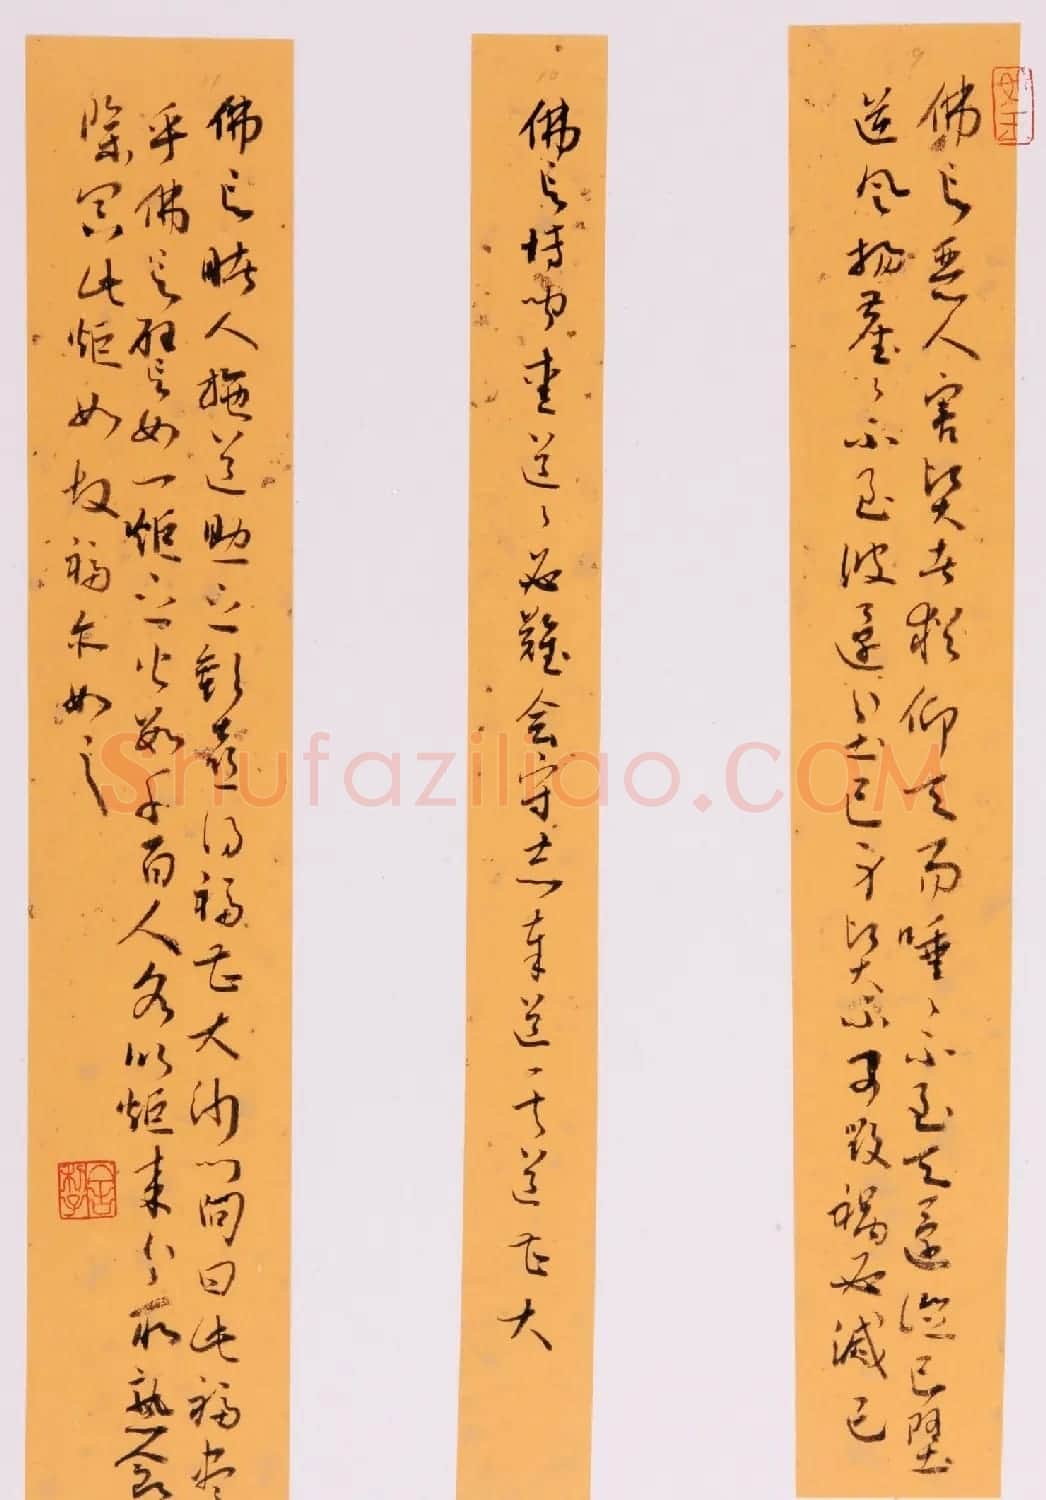 9
佛言恶人害贤者犹仰天而唾唾不至天还从己堕
逆风扬尘尘不至彼还坌己身贤不可毁祸必灭己
10
佛言博闻爱道道必难会守志奉道其道甚大
11
佛言睹人施道助之欢喜得福甚大沙门问曰此福尽
乎佛言譬如一炬之火数千百人各以炬来分取熟食
除冥此炬如故福亦如之
Shufaziliao.COM